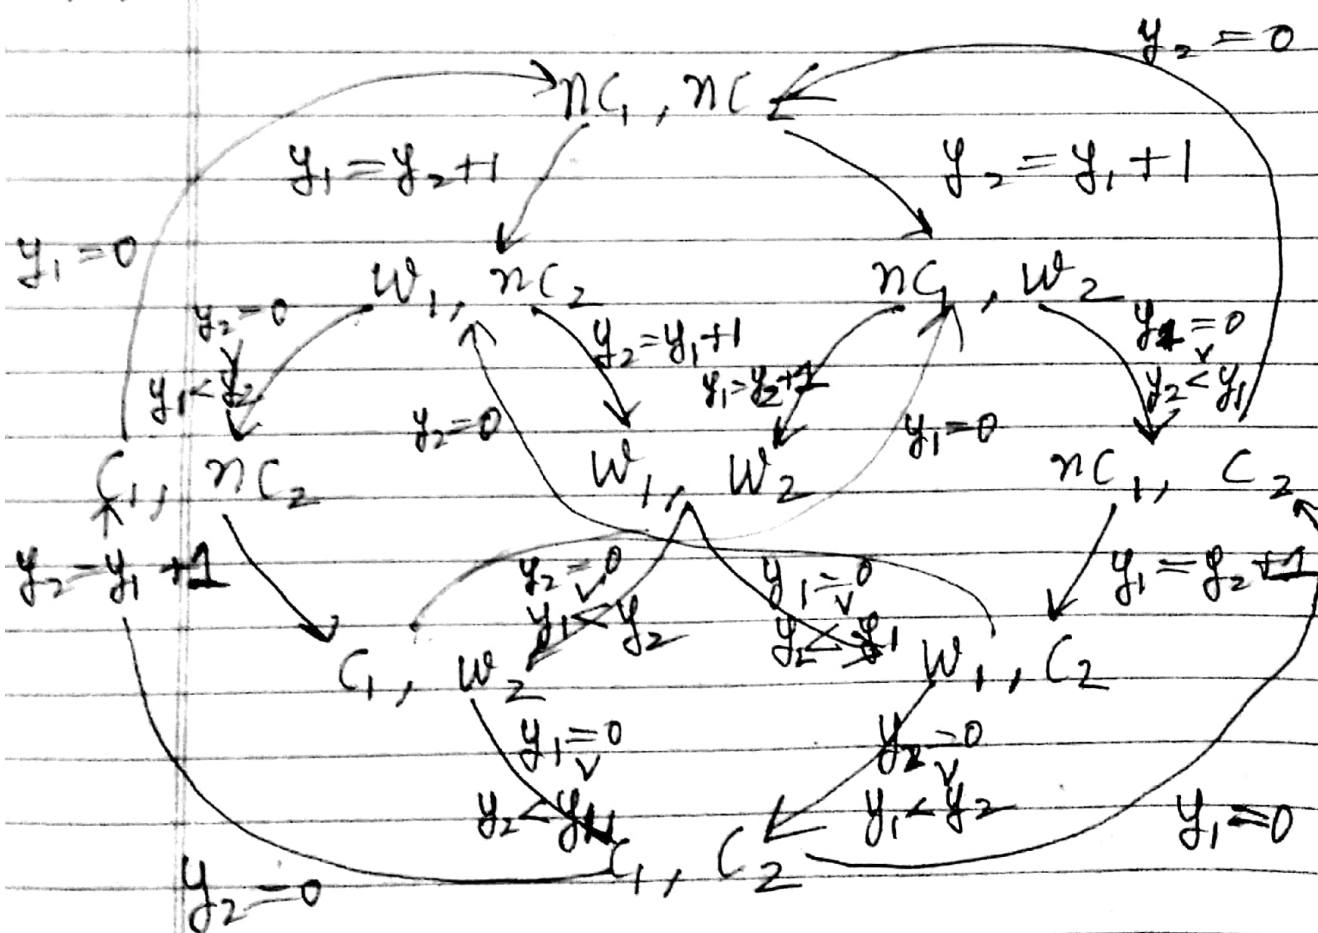 y₂ = 0
nC₁, nC₂
y₁ = y₂ + 1
y₂ = y₁ + 1
y₁ = 0
W₁, nC₂
nC₁, W₂
y₂ = 0
∨
y₁ < y₂
y₂ = y₁ + 1
y₁ = y₂ + 1
y₁ = 0
∨
y₂ < y₁
y₂ = 0
y₁ = 0
C₁, nC₂
W₁, W₂
nC₁, C₂
y₂ = y₁ + 1
y₂ = 0
∨
y₁ < y₂
y₁ = 0
∨
y₂ < y₁
y₁ = y₂ + 1
C₁, W₂
W₁, C₂
y₁ = 0
∨
y₂ < y₁
y₂ = 0
∨
y₁ < y₂
C₁, C₂
y₁ = 0
y₂ = 0